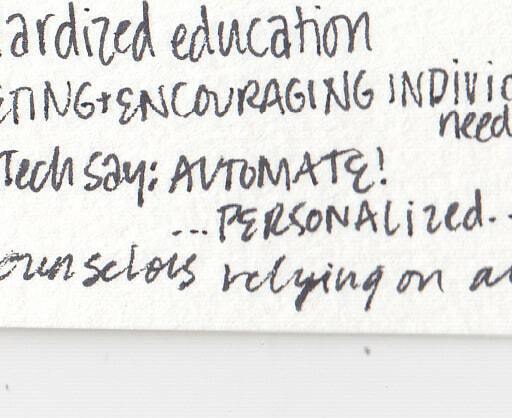 ardized education
ETING+ENCOURAGING INDIVID
need
Tech say: AUTOMATE!
...PERSONAlized..
ounselors relying on a